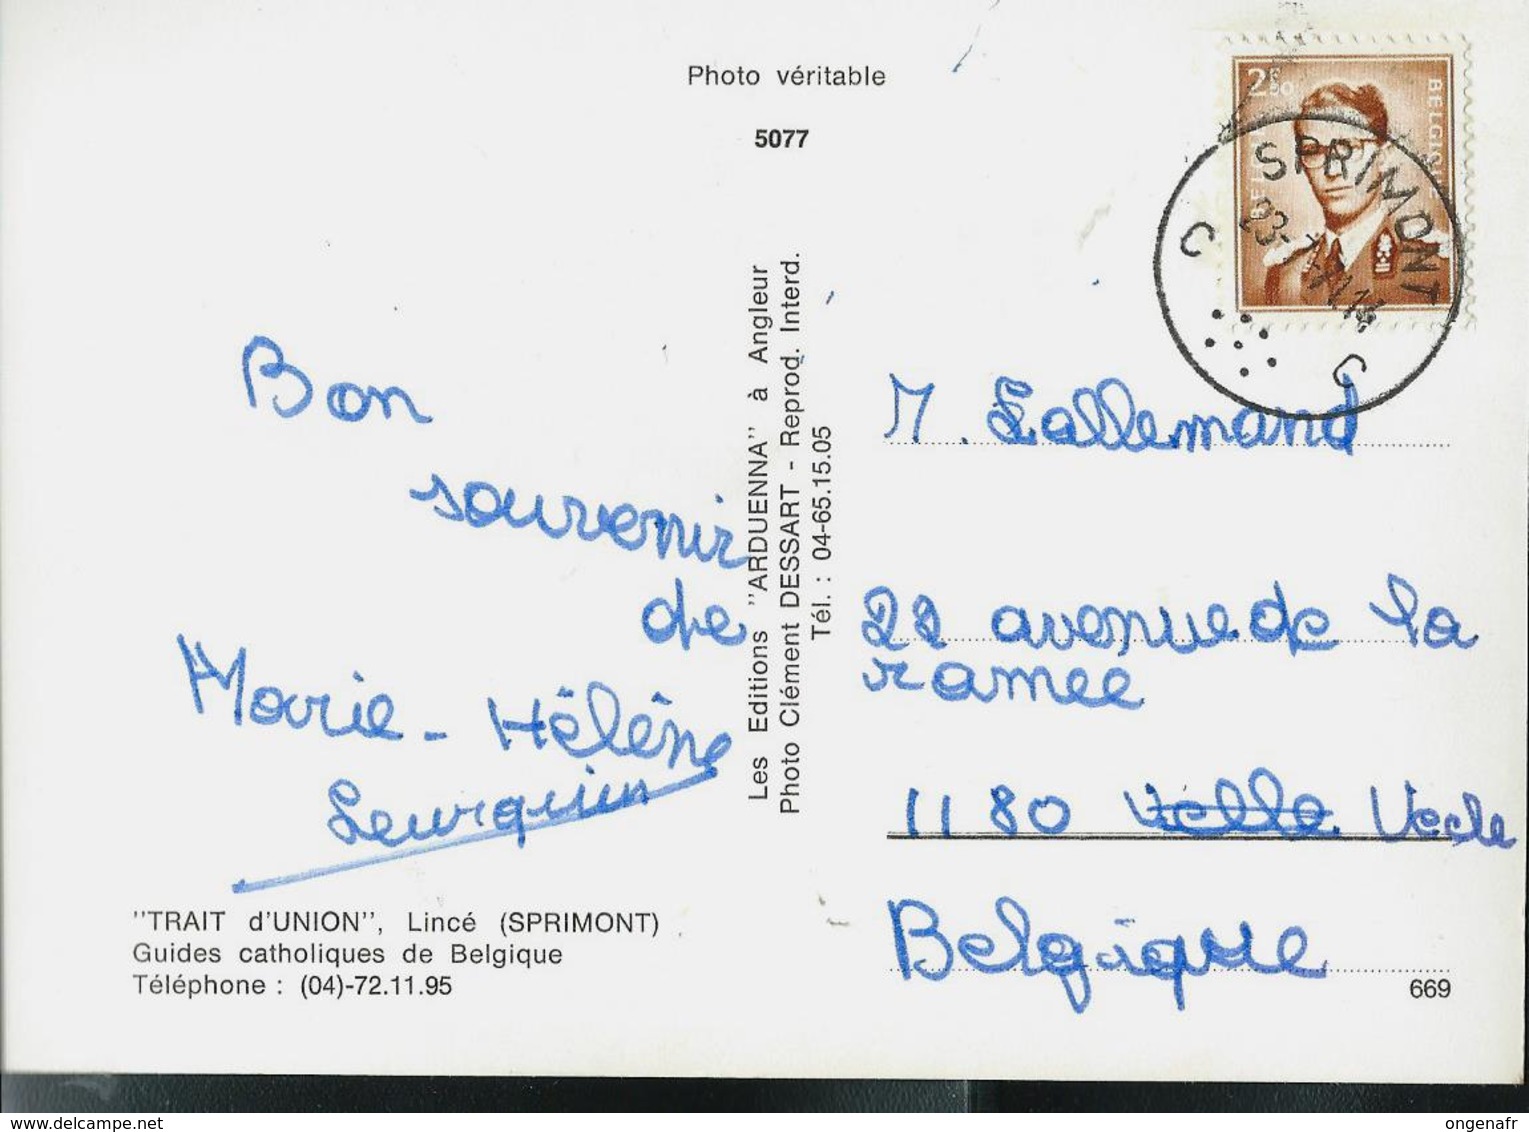 Photo véritable
5077
2F50
BELGIQUE
SPRIMONT
C
C
Bon
souvenir
de
Marie-Hélène
Leurquin
Les Editions "ARDUENNA" à Angleur
Photo Clément DESSART - Reprod. Interd.
Tél. : 04-65.15.05
M. Lallemand
22 avenue de la
ramee
1180 Velle Uccle
Belgique
"TRAIT d'UNION", Lincé (SPRIMONT)
Guides catholiques de Belgique
Téléphone : (04)-72.11.95
669
ongenafr